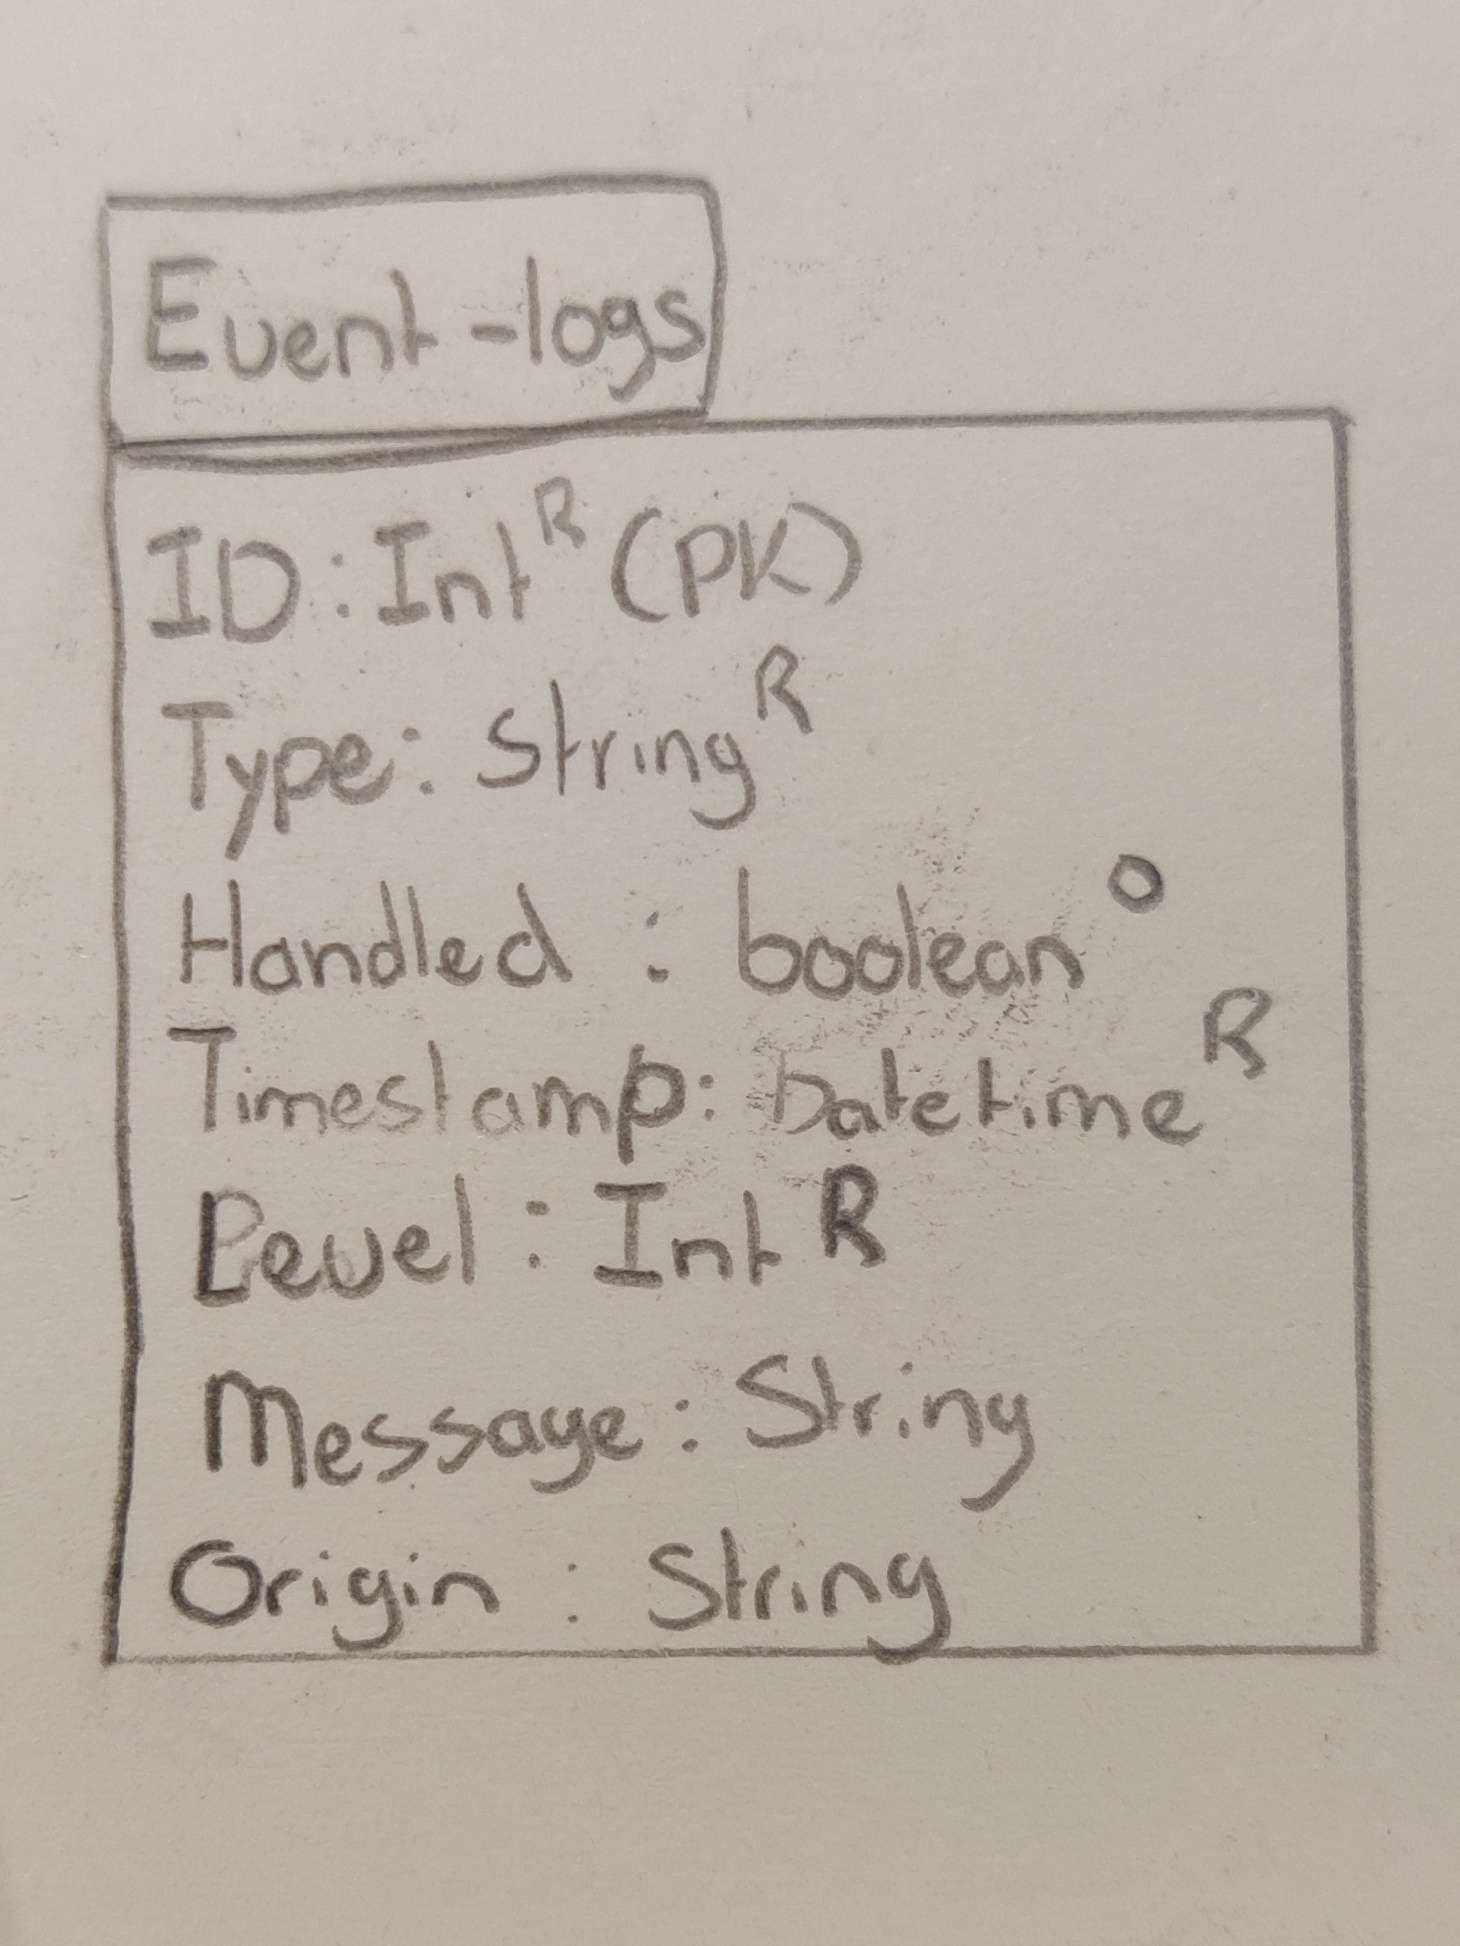 Event-logs
ID: Int R (PK)
Type: String R
Handled: boolean O
Timestamp: Datetime R
Level: Int R
Message: String
Origin: String